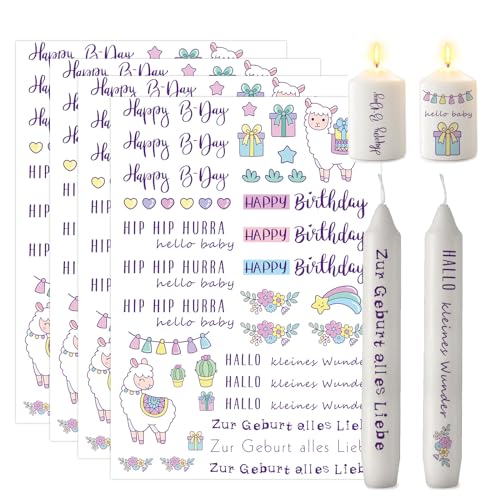 Happy B-Day
Happy B-Day
Happy B-Day
HIP HIP HURRA
hello baby
HIP HIP HURRA
hello baby
HIP HIP HURRA
hello baby
HAPPY Birthday
HAPPY Birthday
HAPPY Birthday
HALLO kleines Wunder
HALLO kleines Wunder
HALLO kleines Wunder
Zur Geburt alles Liebe
Zur Geburt alles Liebe
Zur Geburt alles Liebe
Happy B-Day
hello baby
Zur Geburt alles Liebe
HALLO kleines Wunder